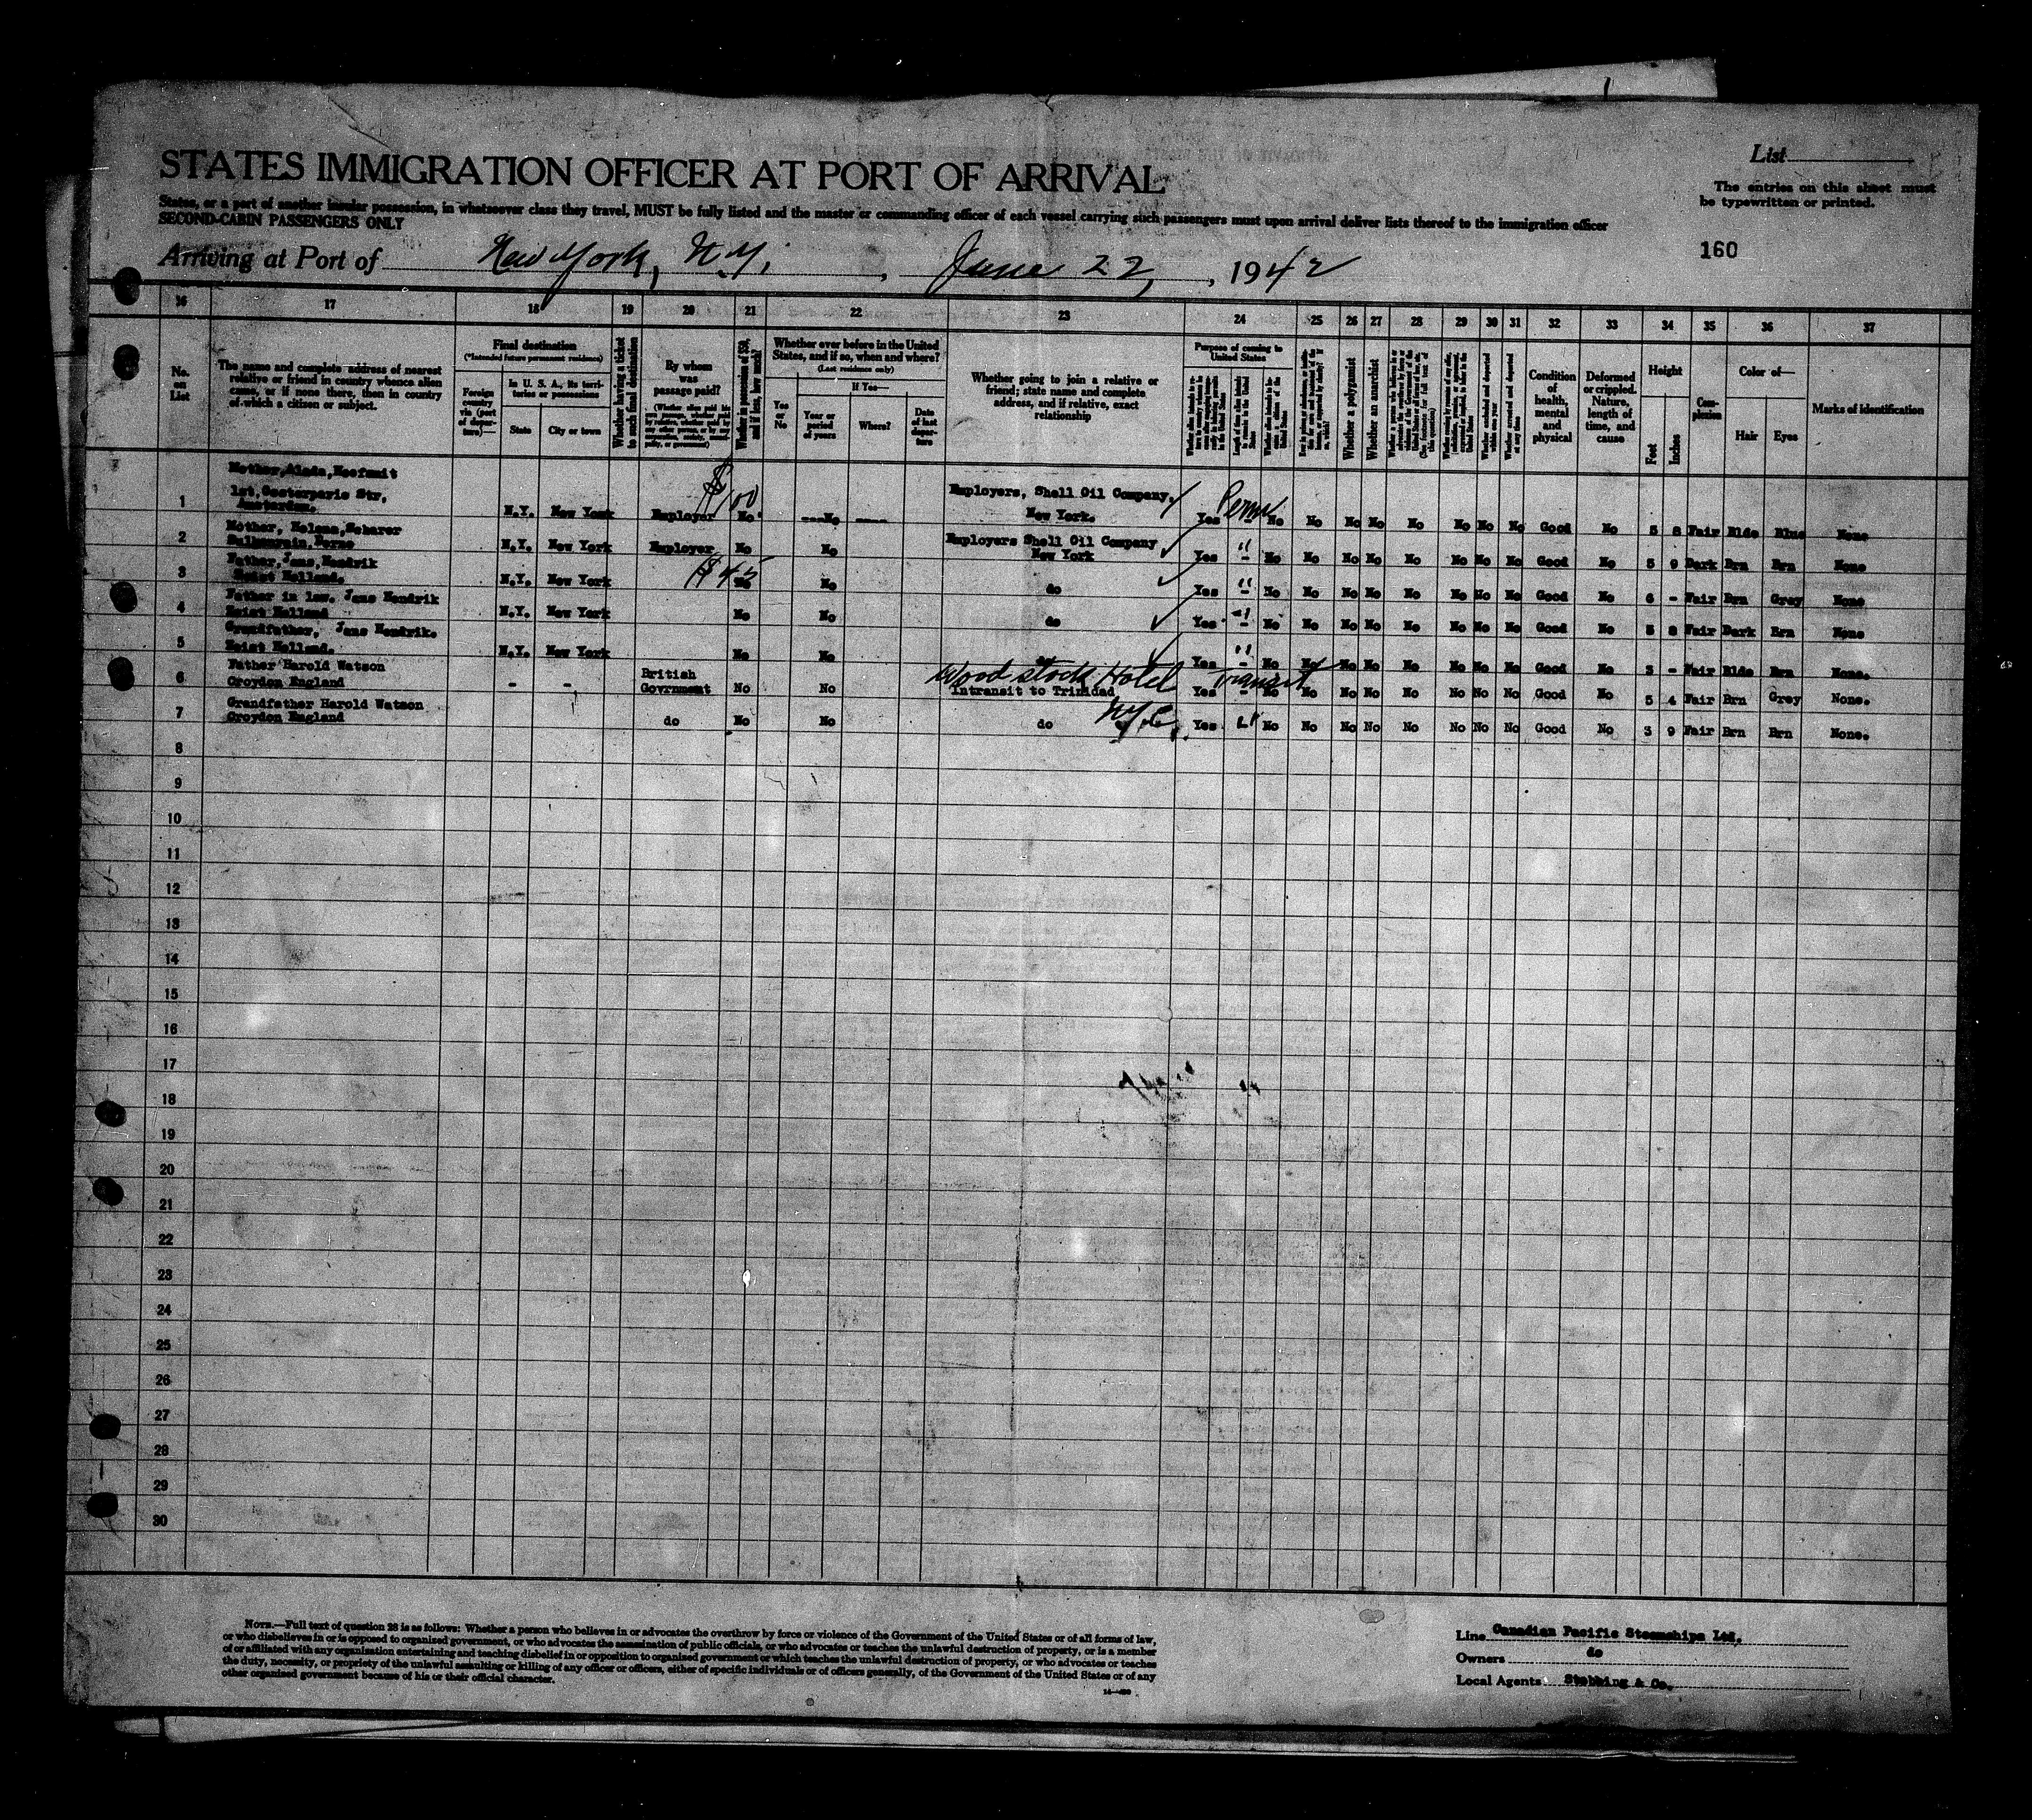 List
STATES IMMIGRATION OFFICER AT PORT OF ARRIVAL
The entries on this sheet must
be typewritten or printed.
States, or a port of another insular possession, in whatsoever class they travel, MUST be fully listed and the master or commanding officer of each vessel carrying such passengers must upon arrival deliver lists thereof to the immigration officer
SECOND-CABIN PASSENGERS ONLY
160
Arriving at Port of New York, N.Y. , June 22, , 1942
16 17 18 19 20 21 22 23 24 25 26 27 28 29 30 31 32 33 34 35 36 37
No. on List
The name and complete address of nearest
relative or friend in country whence alien
came, or if none there, then in country
of which a citizen or subject.
Final destination
(*Intended future permanent residence)
Foreign country via (port of departure)—
In U. S. A., its territories or possessions
State
City or town
Whether having a ticket to such final destination
By whom was passage paid?
Whether in possession of $50, and if less, how much?
Whether ever before in the United
States, and if so, when and where?
(Last residence only)
Yes or No
If Yes—
Year or period of years
Where?
Date of last departure
Whether going to join a relative or
friend; state name and complete
address, and if relative, exact
relationship
Purpose of coming to United States
Whether a polygamist
Whether an anarchist
Condition of health, mental and physical
Deformed or crippled. Nature, length of time, and cause
Height
Feet
Inches
Complexion
Color of—
Hair
Eyes
Marks of identification
1 Mother, Alada,
1st, Oosterparic Str,
Amsterdam.
N.Y. New York Employer $100 No No Employers, Shell Oil Company, New York. Yes Perm No No No No No No No No Good No 5 8 Fair Blde Blue None
2 Mother, Helena, Scharer
Berne
N.Y. New York Employer No No Employers Shell Oil Company New York Yes " No No No No No No No No Good No 5 9 Dark Brn Brn None
3 Father, Jans, Hendrik
Zeist Holland.
N.Y. New York $45 No No do Yes " No No No No No No No No Good No 6 - Fair Brn Grey None
4 Father in law. Jans Hendrik
Zeist Holland
N.Y. New York No No do Yes " No No No No No No No No Good No 5 8 Fair Dark Brn None
5 Grandfather, Jans Hendrik.
Zeist Holland.
N.Y. New York No No Yes " No No No No No No No No Good No 3 - Fair Blde Brn None.
6 Father Harold Watson
Croydon England
- - British Government No No Woodstock Hotel Intransit to Trinidad NYC Yes Transit No No No No No No No No Good No 5 4 Fair Brn Grey None.
7 Grandfather Harold Watson
Croydon England
do No No do Yes " No No No No No No No No Good No 3 9 Fair Brn Brn None.
8
9
10
11
12
13
14
15
16
17
18
19
20
21
22
23
24
25
26
27
28
29
30
NOTE.—Full text of question 28 is as follows: Whether a person who believes in or advocates the overthrow by force or violence of the Government of the United States or of all forms of law,
or who disbelieves in or is opposed to organized government, or who advocates the assassination of public officials, or who advocates or teaches the unlawful destruction of property, or is a member
of or affiliated with any organization entertaining and teaching disbelief in or opposition to organized government or which teaches the unlawful destruction of property, or who advocates or teaches
the duty, necessity, or propriety of the unlawful assaulting or killing of any officer or officers, either of specific individuals or of officers generally, of the Government of the United States or of any
other organized government because of his or their official character.
Line Canadian Pacific Steamships Ltd.
Owners do
Local Agents Stebbing & Co.